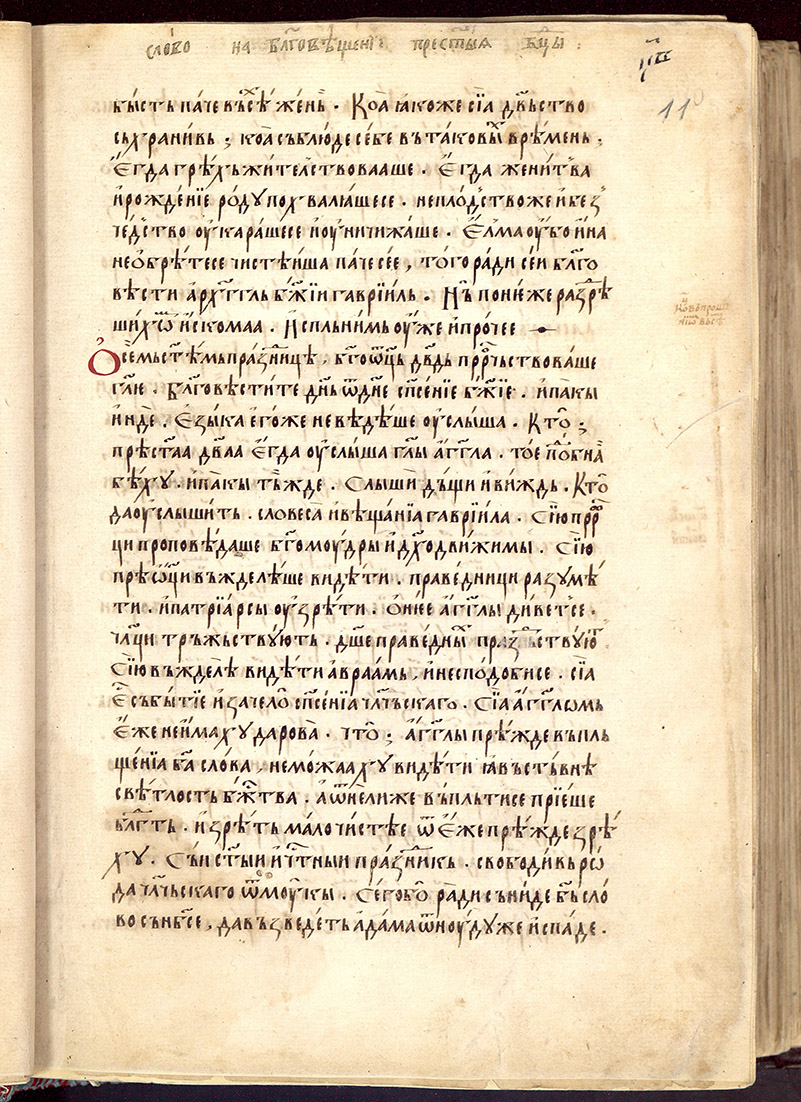 сло́во на бл҃гов́ѣщенїе прест҃ыя бц҃ы :
11
бы́сть па́че въсѣ́х же́нь . Коа̀ ꙗкоже сїа̀ дв҃ьство
съхрани́вь ; коа̀ съблю́де се́бе въ таковы́х врѣ́мень ,
Е҆гда грѣ́хъ жи́телствоваше . Е҆гда жени́тва
и҆ рожде́нїе ро́ду похвалꙗ́шесе . непло́дство же и҆ без̾
че́дство оу҆кара́шесе и҆ оу҆ничижа́ше . Е҆лма оу҆́бо и҆́на
не ѡ҆брѣ́тесе чистѣ́иша па́че се́е , то́го ра́ди се́и бл҃го
вѣ́сти а҆рхⷢ҇гль бж҃їи гаврїи́ль . Нъ̀ поне́же разⷣрѣ
ши́хѡⷨ и҆скомаа . И҆спль́нимь оу҆́же и҆ про́чее
Ѻ҆ се́мь ст҃ѣ́мь пра́зⷣницѣ , бг҃оѡц҃ь дв҃дь прⷪ҇рчьствова́ше
гл҃ѥ . бл҃говѣсти́те дн҃ь ѿ дн҃е сп҃се́нїе бж҃їе . и҆ па́кы
и҆́нде . Е҆зы́ка е҆го́же не вѣ́дѣше оу҆слы́ша . Кто̀ ;
прѣст҃аа дв҃аа е҆гда̀ оу҆слы́ша гл҃ы а҆́гг҃ла . то́е пⷪ҇ѡ бл҃на
бѣ́ху . и҆ па́кы тъ́жде . Слы́ши дъ́щи и҆ ви́ждь . Кто̀
да оу҆слы́шить . словеса̀ и҆ вѣща́нїа гаврїи́ла . Сїю̀ прⷪ҇рⷪ҇
ци проповѣ́даше бг҃омоу́дры и҆ дх҃одви́жимы . Сїю̀
прѣ́ѡц҃и въжделѣ́ше ви́дѣти . пра́ведници разумѣ́
ти . и҆ патрїа́рсы оу҆зрѣ́ти . Ѻ҆ не́е а҆́гг҃лы ди́ветсе .
чл҃ци трьжьству́ють . дш҃е пра́ведныⷯ пра́зⷣьству́юⷮ
Сїю̀ въжделѣ̀ ви́дѣти а҆враа́мь , и҆ не спо́добисе . сїа̀
е҆ събы́тїе и҆ зачело̀ сп҃се́нїа чл҃чьскаго . Сїа̀ а҆́гг҃ломь
е҆́же не и҆́маху дарова̀ . что̀ ; а҆́гг҃лы прѣ́жде въпль
ще́нїа ба҃ сло́ва , не мо́жааху ви́дѣти ꙗвъстьвнѣ
свѣ́тлость бж҃тва . а҆ ѿне́лиже въпльти́се прїе́ше
бл҃гть . и҆ зрѣ́ть ма́ло чи́стѣе ѿ е҆́же прѣ́жде зрѣ́
ху . Съ́и ст҃ыи и҆ чⷭ҇тныи пра́зⷣникь . свободи́вь рѡ
да чл҃чьскаго ѿ моу́кы . Се́го бо ра́ди съни́де бъ҃ сло́
во съ нб҃се , да възведе́ть а҆да́ма ѿноу́дуже и҆спа́де .